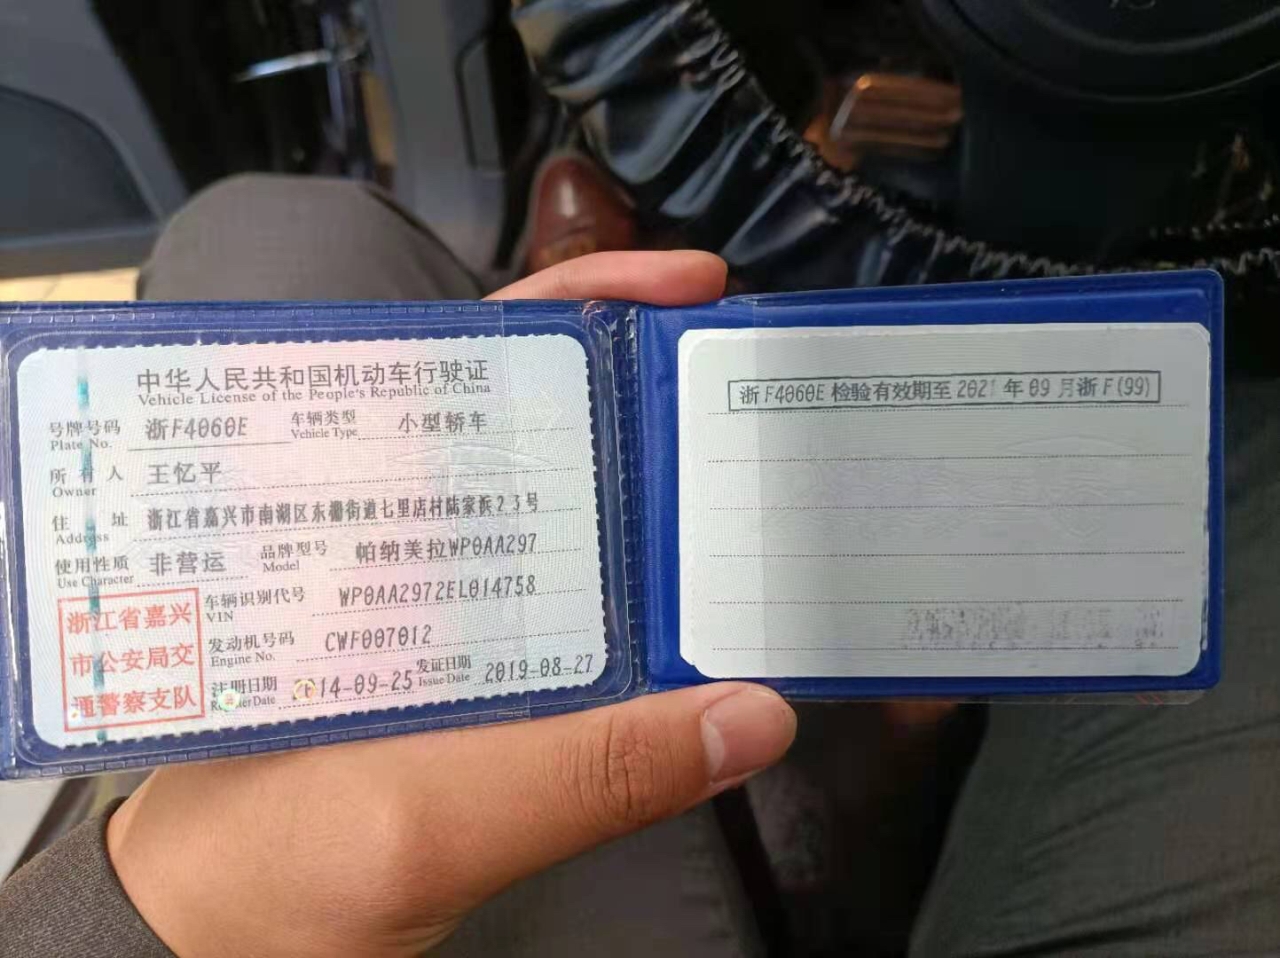 中华人民共和国机动车行驶证
Vehicle License of the People's Republic of China
号牌号码 浙F4060E 车辆类型 小型轿车
Plate No. Vehicle Type
所有人 王忆平
Owner
住址 浙江省嘉兴市南湖区东栅街道七里店村陆家浜23号
Address
使用性质 非营运 品牌型号 帕纳美拉WP0AA297
Use Character Model
车辆识别代号 WP0AA2972EL014758
VIN
发动机号码 CWF007012
Engine No.
注册日期 2014-09-25 发证日期 2019-08-27
Register Date Issue Date
浙江省嘉兴
市公安局交
通警察支队
浙F4060E 检验有效期至 2021 年 09 月浙F(99)